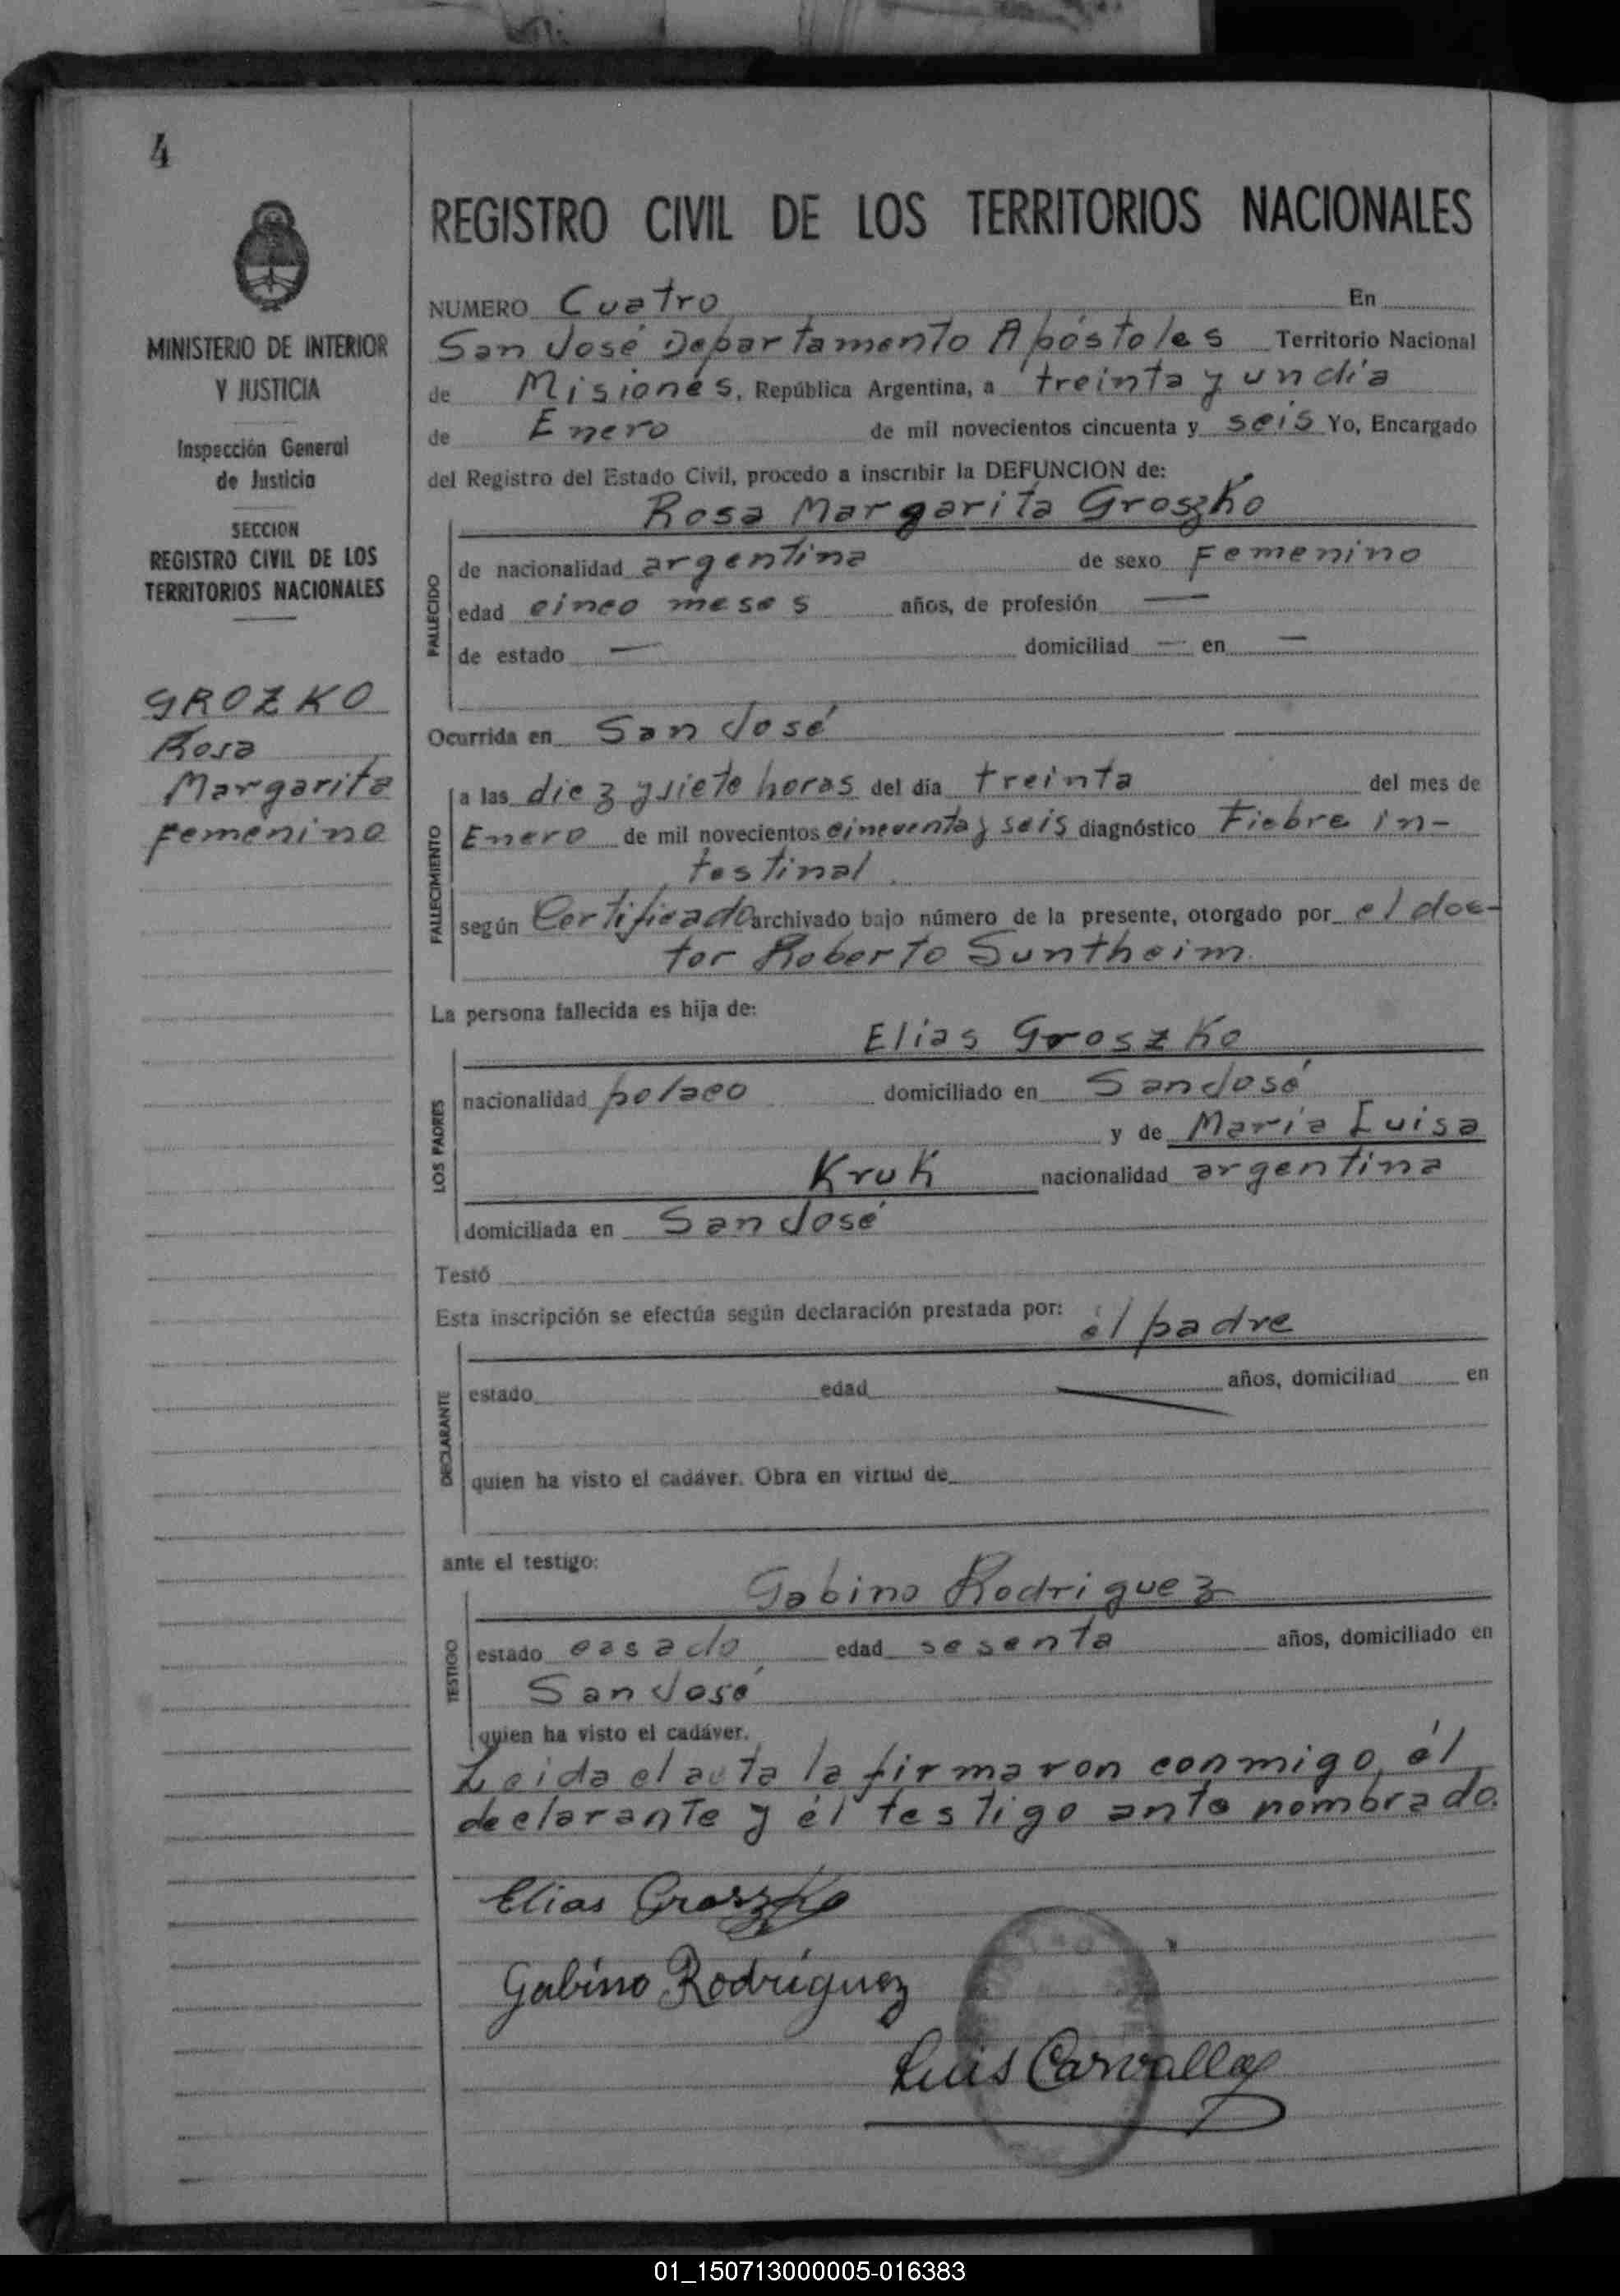 4
MINISTERIO DE INTERIOR
Y JUSTICIA
Inspección General
de Justicia
SECCION
REGISTRO CIVIL DE LOS
TERRITORIOS NACIONALES
GROZKO
Rosa
Margarita
femenino
REGISTRO CIVIL DE LOS TERRITORIOS NACIONALES
NUMERO Cuatro En
San José Departamento Apóstoles Territorio Nacional
de Misiones, República Argentina, a treinta y un día
de Enero de mil novecientos cincuenta y seis Yo, Encargado
del Registro del Estado Civil, procedo a inscribir la DEFUNCION de:
Rosa Margarita Groszko
FALLECIDO
de nacionalidad argentina de sexo Femenino
edad cinco meses años, de profesión —
de estado — domiciliad — en —
Ocurrida en San José
FALLECIMIENTO
a las diez y siete horas del día treinta del mes de
Enero de mil novecientos cincuenta y seis diagnóstico Fiebre in-
testinal
según Certificado archivado bajo número de la presente, otorgado por el doc-
tor Roberto Suntheim.
La persona fallecida es hija de:
LOS PADRES
Elias Groszko
nacionalidad polaco domiciliado en San José
y de Maria Luisa
Kruk nacionalidad argentina
domiciliada en San José
Testó
Esta inscripción se efectúa según declaración prestada por:
él padre
DECLARANTE
estado edad años, domiciliad en
quien ha visto el cadáver. Obra en virtud de
ante el testigo:
Gabino Rodriguez
TESTIGO
estado casado edad sesenta años, domiciliado en
San José
quien ha visto el cadáver.
Leida el acta la firmaron conmigo, él
declarante y él testigo ante nombrado.
Elias Groszko
Gabino Rodríguez
Luis Carvallo
01_150713000005-016383